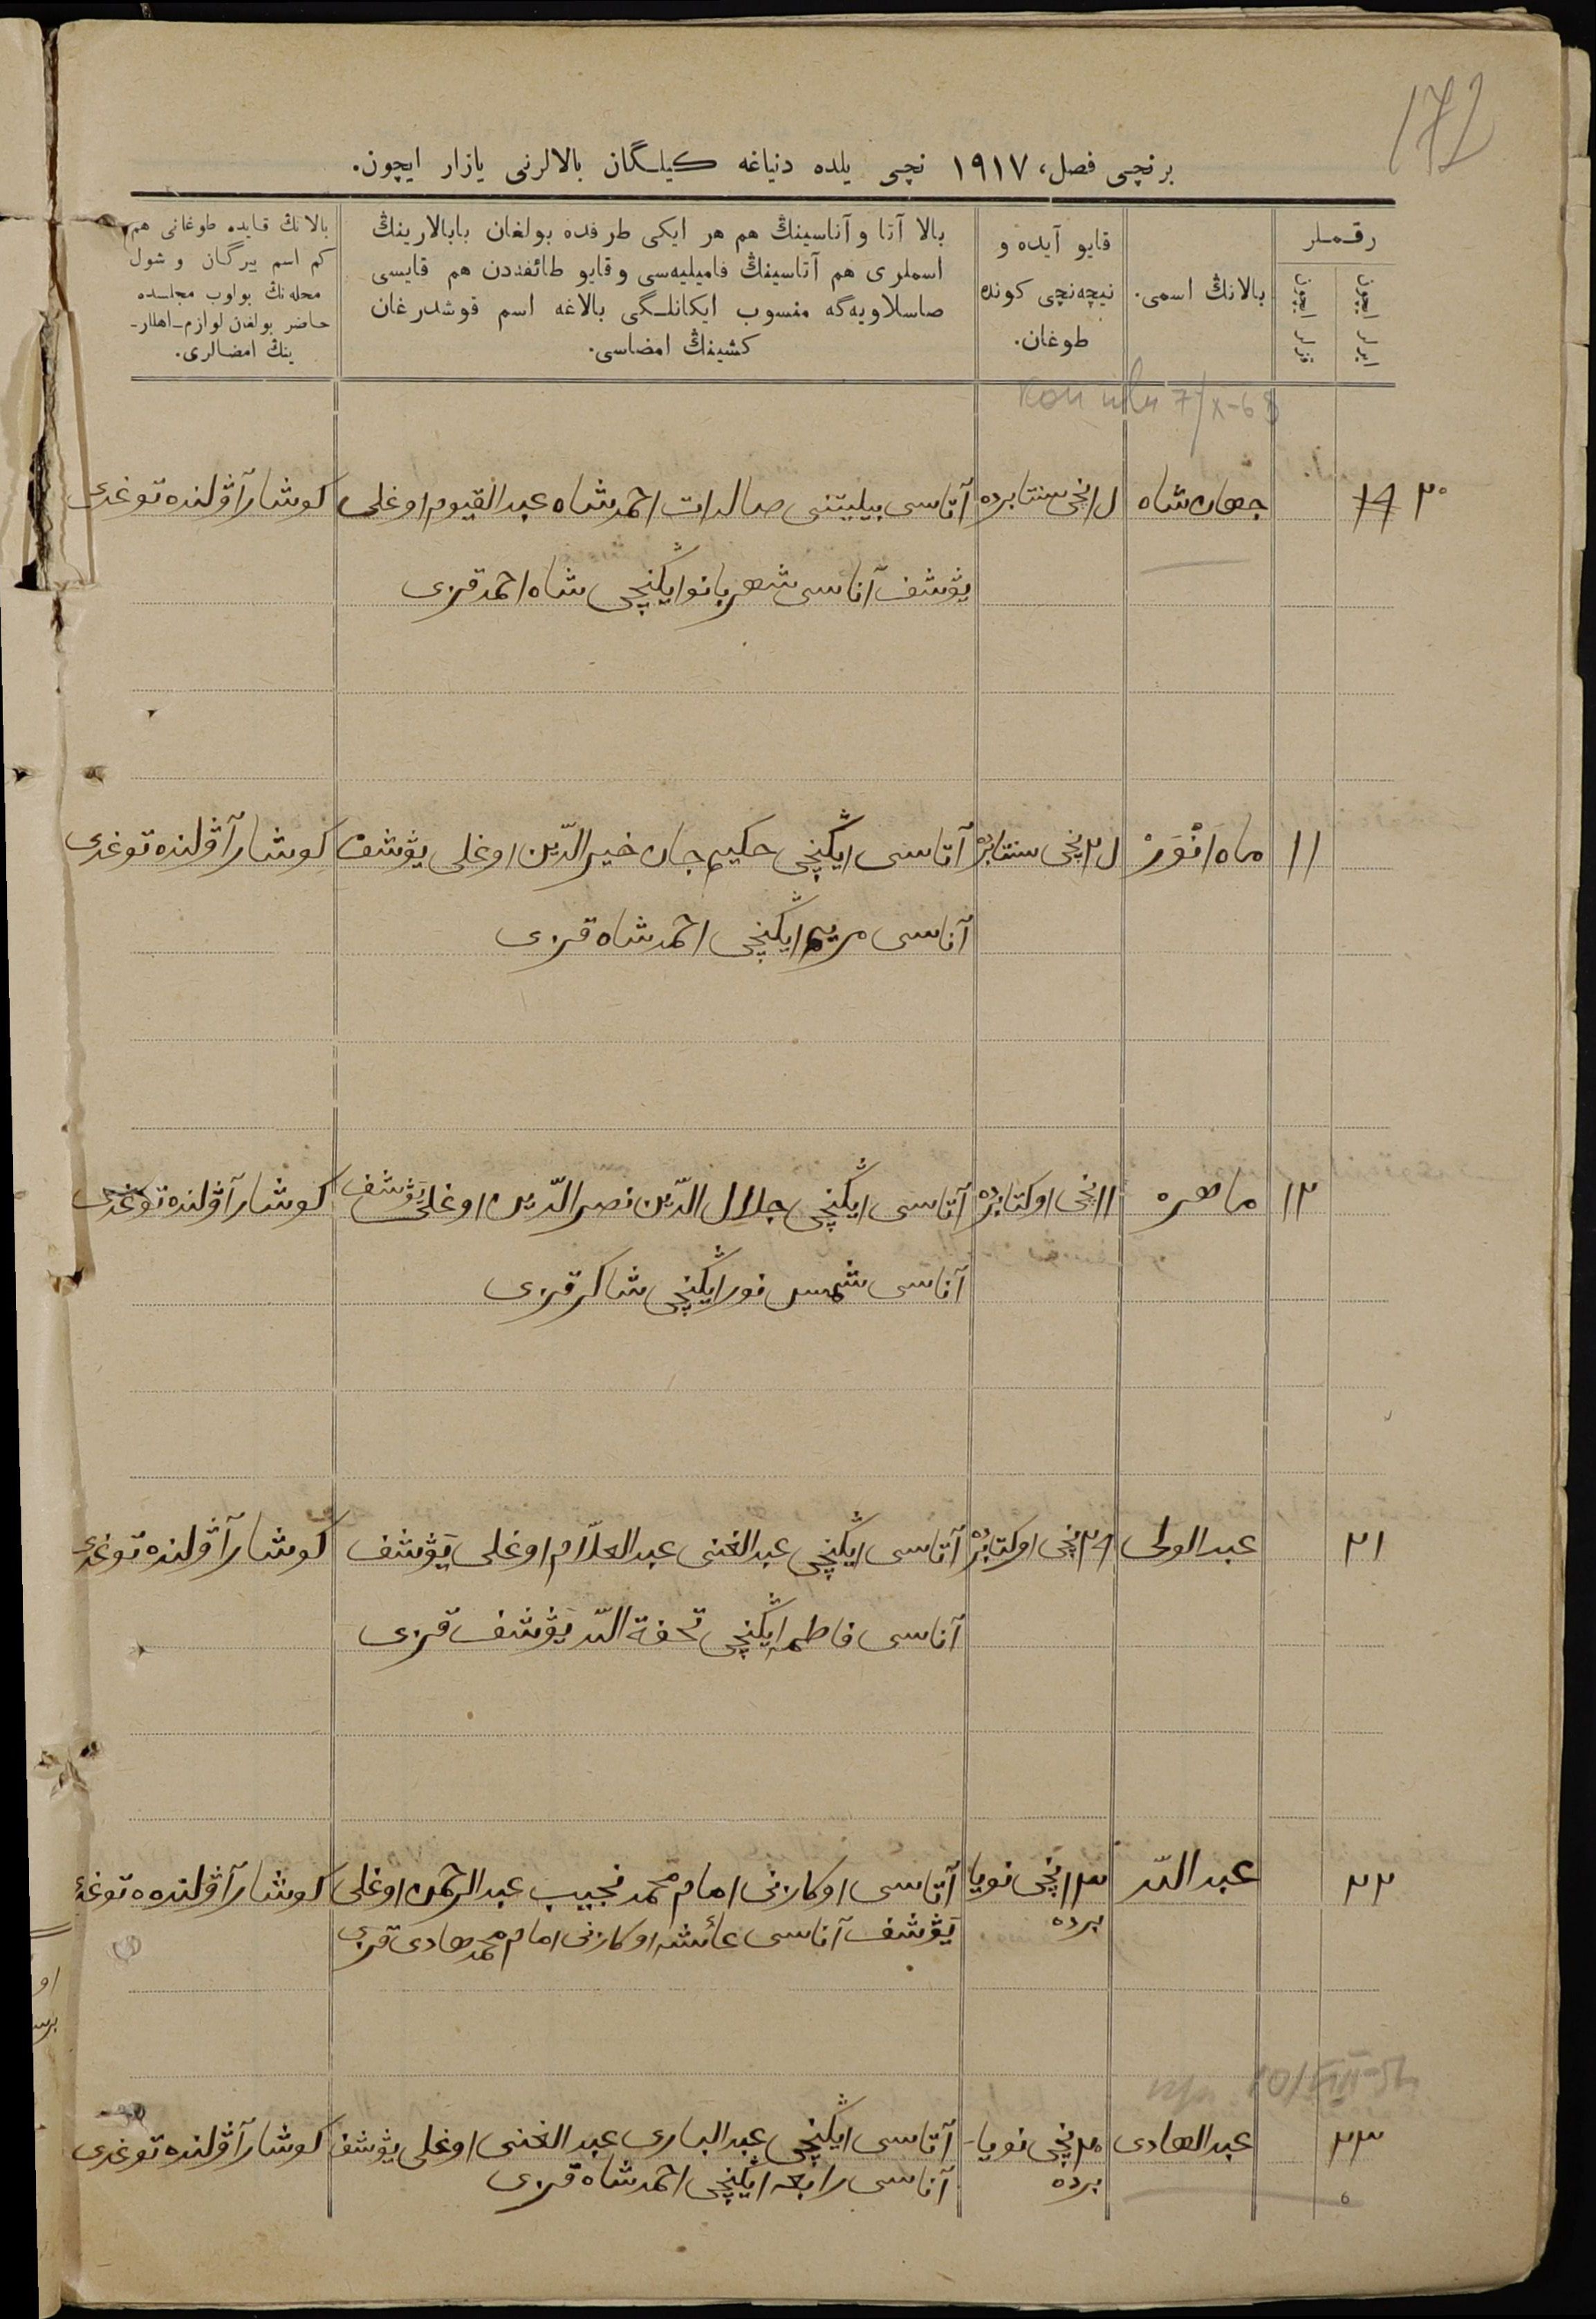 172
برنچی فصل، ١٩١٧ نچی یلده دنیاغه کیلگان بالالرنی یازار ایچون.
رقملر
ایرلر ایچون
قزلر ایچون
بالانڭ اسمی.
قایو آیده و
نیچه‌نچی کونده
طوغان.
بالا آتا و آناسینڭ هم هر ایکی طرفده بولغان بابالارینڭ
اسملری هم آتاسینڭ فامیلیه‌سی و قایو طائفه‌دن هم قایسی
صاسلاویه‌گه منسوب ایکانلگی بالاغه اسم قوشدرغان
کشینڭ امضاسی.
بالانڭ قایده طوغانی هم
کم اسم بیرگان و شول
محله‌نڭ بولوب مجلسده
حاضر بولغان لوازم-اهللر-
ینڭ امضالری.
7/X-68
٢٠ 19
جهان شاه
نچی سنتابرده
آتاسی بیلیتنی صالدات احمدشاه عبدالقیوم اوغلی
یوشف آناسی شهربانو ایگنچی شاه احمد قزی
کوشار آولنده توغدی
١١
ماه انور
نچی سنتابرده
آتاسی ایگنچی حکیم جان خیرالدین اوغلی یوشف
آناسی مریم ایگنچی احمدشاه قزی
کوشار آولنده توغدی
١٢
ماهره
١١نچی اوکتابرده
آتاسی ایگنچی جلال الدین نصرالدین اوغلی یوشف
آناسی شمس نور ایگنچی شاکر قزی
کوشار آولنده توغدی
٢١
عبدالولی
٢٩نچی اوکتابرده
آتاسی ایگنچی عبدالغنی عبدالعلام اوغلی یوشف
آناسی فاطمه ایگنچی تحفة الله یوشف قزی
کوشار آولنده توغدی
٢٢
عبدالله
١٣نچی نویا
برده
آتاسی اوکازنی امام محمد نجیب عبدالرحمن اوغلی
یوشف آناسی عائشه اوکازنی امام محمدهادی قزی
کوشار آولنده توغدی
٢٣
عبدالهادی
٢٠نچی نویا-
برده
آتاسی ایگنچی عبدالباری عبدالغنی اوغلی یوشف
آناسی رابعه ایگنچی احمدشاه قزی
کوشار آولنده توغدی